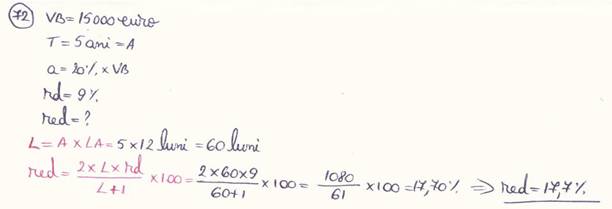 72) VB = 15000 euro
T = 5 ani = A
a = 20% x VB
rd = 9%
red = ?
L = A x LA = 5 x 12 luni = 60 luni
red = 2 x L x rd / L+1 x 100 = 2 x 60 x 9 / 60+1 x 100 = 1080 / 61 x 100 = 17,70% => red = 17,7%